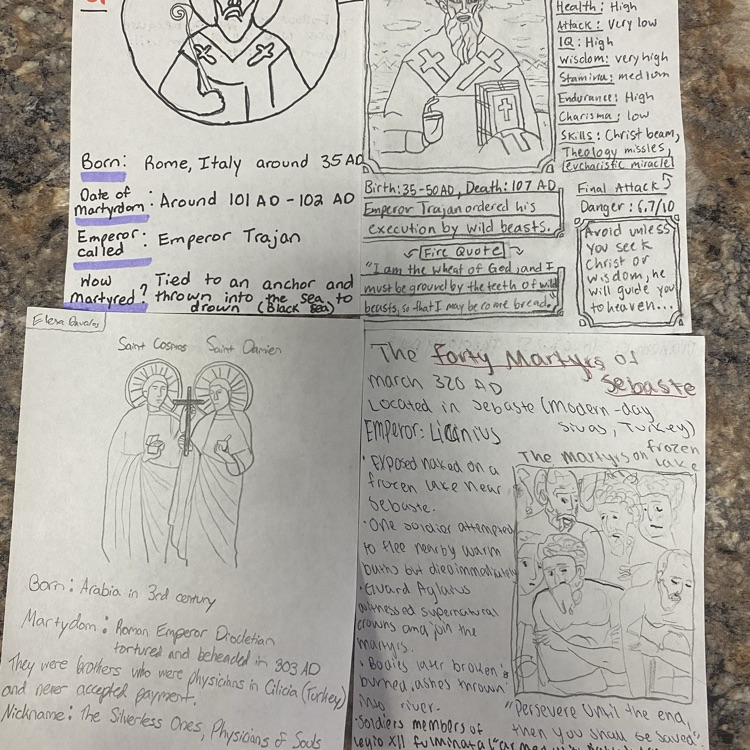 Born: Rome, Italy around 35 AD
Date of
Martyrdom: Around 101 AD - 102 AD
Emperor
called: Emperor Trajan
How
Martyred? Tied to an anchor and
thrown into the sea to
drown (Black Sea)
Health: High
Attack: Very low
IQ: High
Wisdom: very high
Stamina: medium
Endurance: High
Charisma: low
Skills: Christ beam,
Theology missles,
eucharistic miracle
Final Attack
Danger: 6.7/10
Avoid unless
you seek
Christ or
wisdom, he
will guide you
to heaven...
Birth: 35-50 AD, Death: 107 AD
Emperor Trajan ordered his
execution by wild beasts.
Fire Quote
"I am the wheat of God, and I
must be ground by the teeth of wild
beasts, so that I may become bread.
Elexa
Saint Cosmos Saint Damien
Born: Arabia in 3rd century
Martydom: Roman Emperor Diocletian
tortured and beheaded in 303 AD
They were brothers who were physicians in Cilicia (Turkey)
and never accepted payment.
Nickname: The Silverless Ones, Physicians of Souls
The Forty Martyrs of
Sebaste
march 320 AD
Located in Sebaste (modern-day
Sivas, Turkey)
Emperor: Licinius
The Martyrs on frozen
lake
• Exposed naked on a
frozen lake near
Sebaste.
• One soldier attempted
to flee nearby warm
baths but died immediately
• Guard Aglaius
witnessed supernatural
crowns and join the
martyrs.
• Bodies later broken
burned, ashes thrown
into river.
• Soldiers members of
legio XII fulminata
"Persevere until the end,
then you shall be saved"